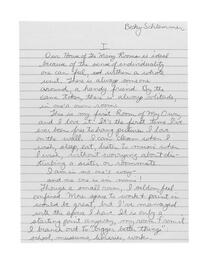 Becky Schlemmer
I.
Our House of the Many Rooms is ideal
because of the sense of individuality
one can feel, yet within a whole
unit. There is always someone
around, a handy friend. By the
same token, there is always solitude,
in one's own room.
This is my first Room of My Own,
and I love it. It's the first I've
ever been free to hang pictures I love
on the wall. I can clean when I
wish, sleep, eat, listen to music when
I wish, without worrying about dis-
turbing a sister or roommate.
I am in no one's way—
and no one is in mine!
Though a small room, I seldom feel
confined. More space to work & paint in
would be great, but I've managed
with the space I have. It is only a
starting point anyway, my room. From it
I branch out to "bigger, better things"
school, museums, libraries, work